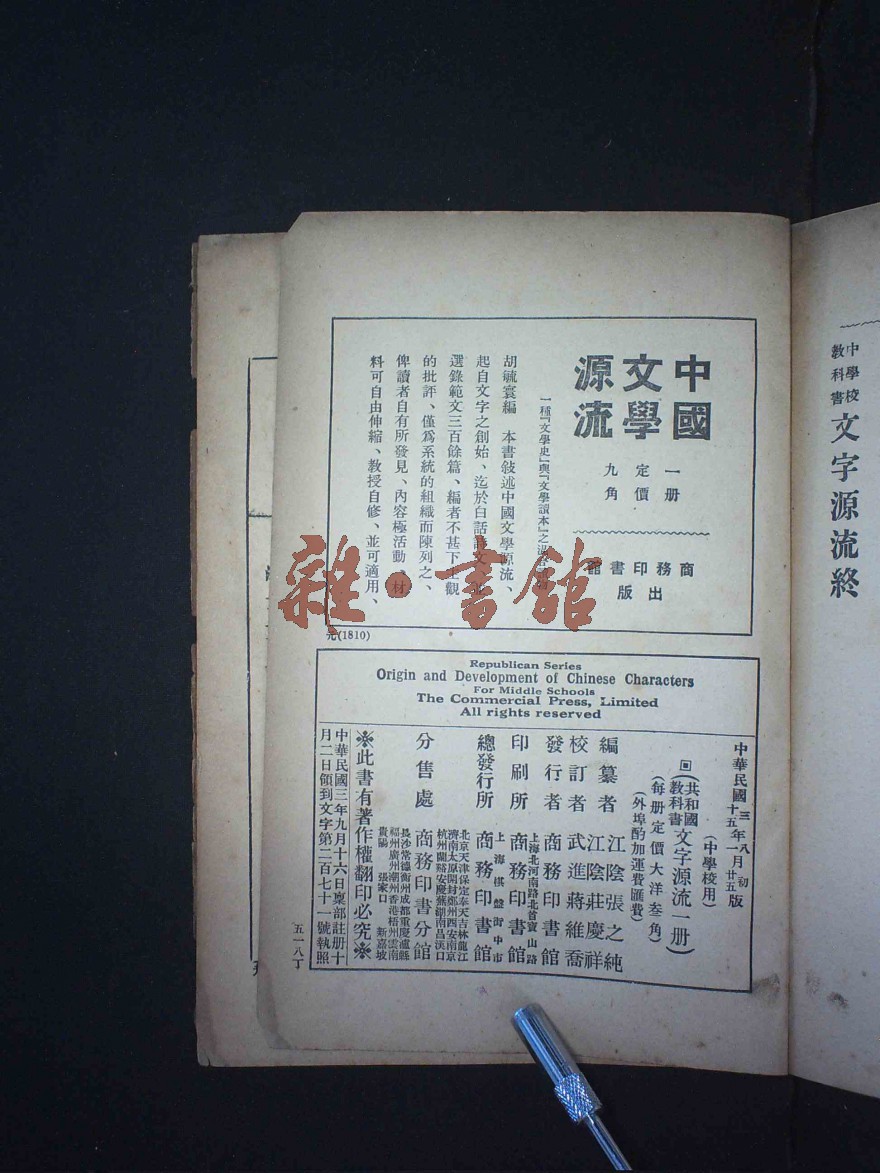 中學校
教科書
文字源流終
中國
文學
源流
一册
定價
九角
商務印書館
出版
一種『文學史』與『文學讀本』之
胡毓寰編　本書敍述中國文學源流、
起自文字之創始、迄於白話
選錄範文三百餘篇、編者不甚下主觀
的批評、僅爲系統的組織而陳列之、
俾讀者自有所發見、內容極活動、材
料可自由伸縮、教授自修、並可適用、
元(1810)
雜·書館
Republican Series
Origin and Development of Chinese Characters
For Middle Schools
The Commercial Press, Limited
All rights reserved
中華民國三年八月初版
十五年一月廿五版
(中學校用)
(共和國教科書文字源流一册)
(每册定價大洋叁角)
(外埠酌加運費匯費)
編纂者　江陰張之純
江陰莊慶祥
校訂者　武進蔣維喬
發行者　商務印書館
上海北河南路北首寶山路
印刷所　商務印書館
上海棋盤街中市
總發行所　商務印書館
北京天津保定奉天吉林龍江
濟南太原開封鄭州西安南京
杭州蘭谿安慶蕪湖南昌漢口
分售處　商務印書分館
長沙常德衡州成都重慶瀘縣
福州廣州潮州香港梧州雲南
貴陽　張家口　新嘉坡
※此書有著作權翻印必究※
中華民國三年九月十六日稟部註册十
月二日領到文字第二百七十一號執照
五一八丁